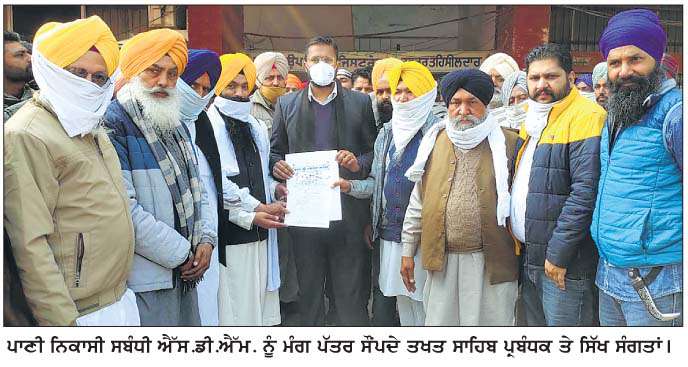 ਪਾਣੀ ਨਿਕਾਸੀ ਸਬੰਧੀ ਐੱਸ.ਡੀ.ਐੱਮ. ਨੂੰ ਮੰਗ ਪੱਤਰ ਸੌਂਪਦੇ ਤਖਤ ਸਾਹਿਬ ਪ੍ਰਬੰਧਕ ਤੇ ਸਿੱਖ ਸੰਗਤਾਂ।